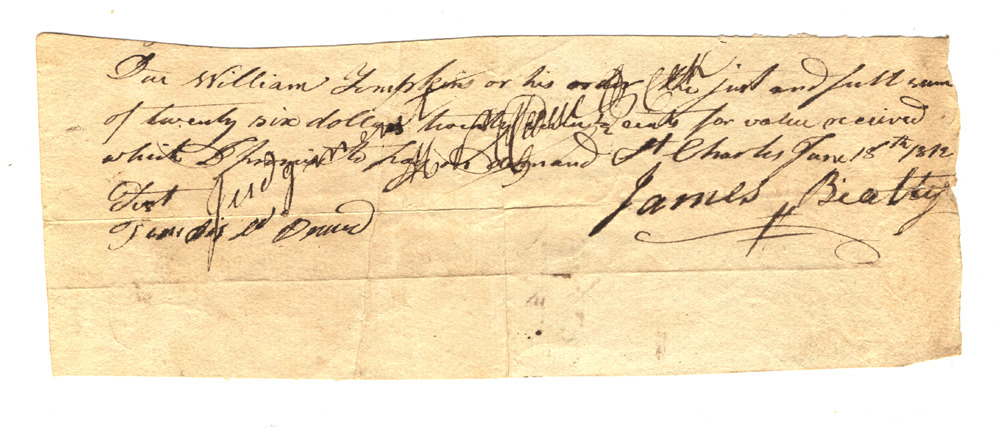 Due William Tompkins or his order the just and full sum
of twenty six dollars twenty cents for value received
which I promis to pay on demand St Charles June 18th 1812
Test
James Beatty